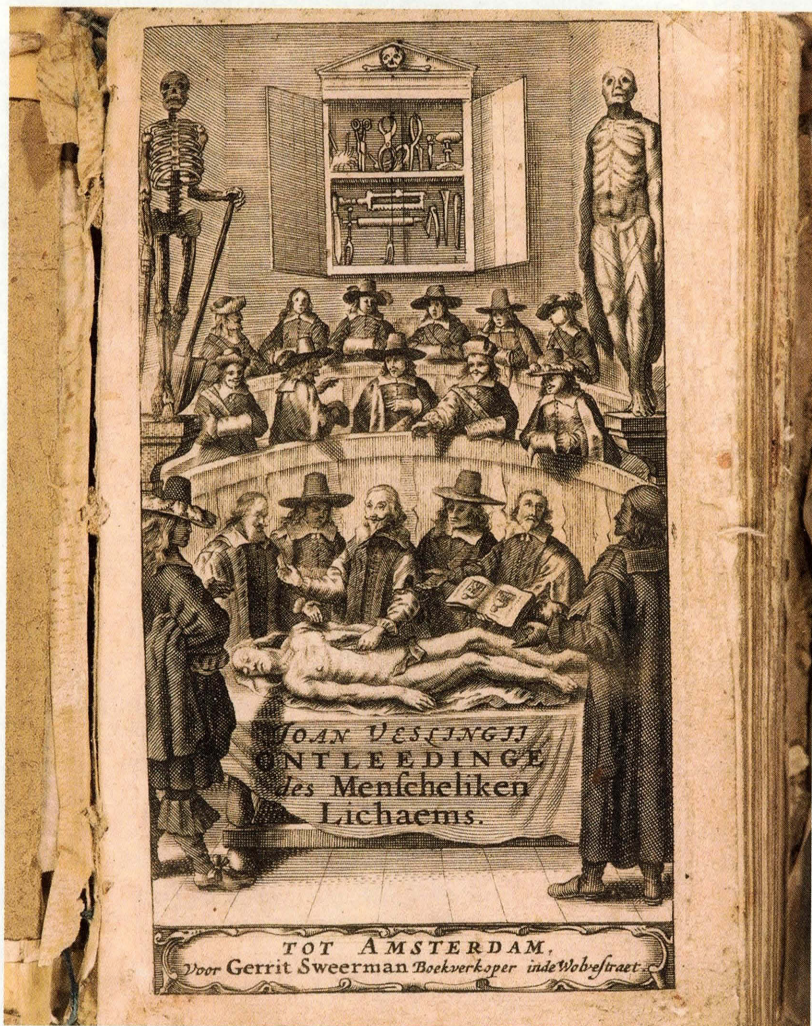 JOAN VESLINGII
ONTLEEDINGE
des Menſcheliken
Lichaems.
TOT AMSTERDAM,
Voor Gerrit Sweerman Boekverkoper inde Wolveſtraet.